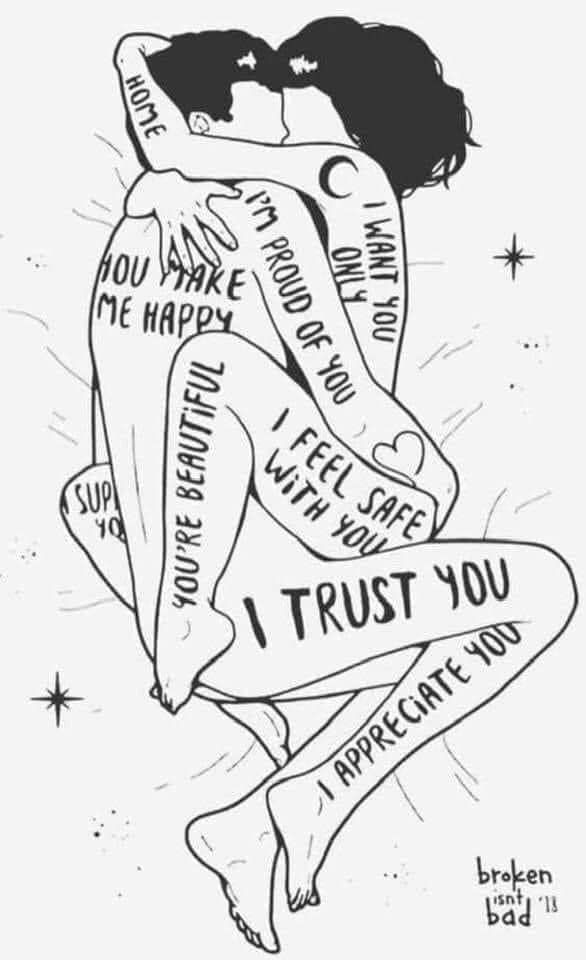 HOME
I WANT YOU
ONLY
I'M PROUD OF YOU
YOU MAKE
ME HAPPY
YOU'RE BEAUTIFUL
I FEEL SAFE
WITH YOU
I SUP
YO
I TRUST YOU
I APPRECIATE YOU
broken
isnt
bad '18